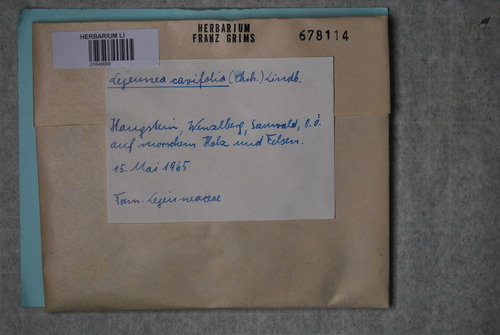 HERBARIUM LI
HERBARIUM
FRANZ GRIMS
678114
Lejeunea cavifolia (Ehrh.) Lindb.
Haugstein, Wenzlberg, Sauwald, O.Ö.
auf morschem Holz und Felsen.
15. Mai 1965
Fam. Lejeuneaceae